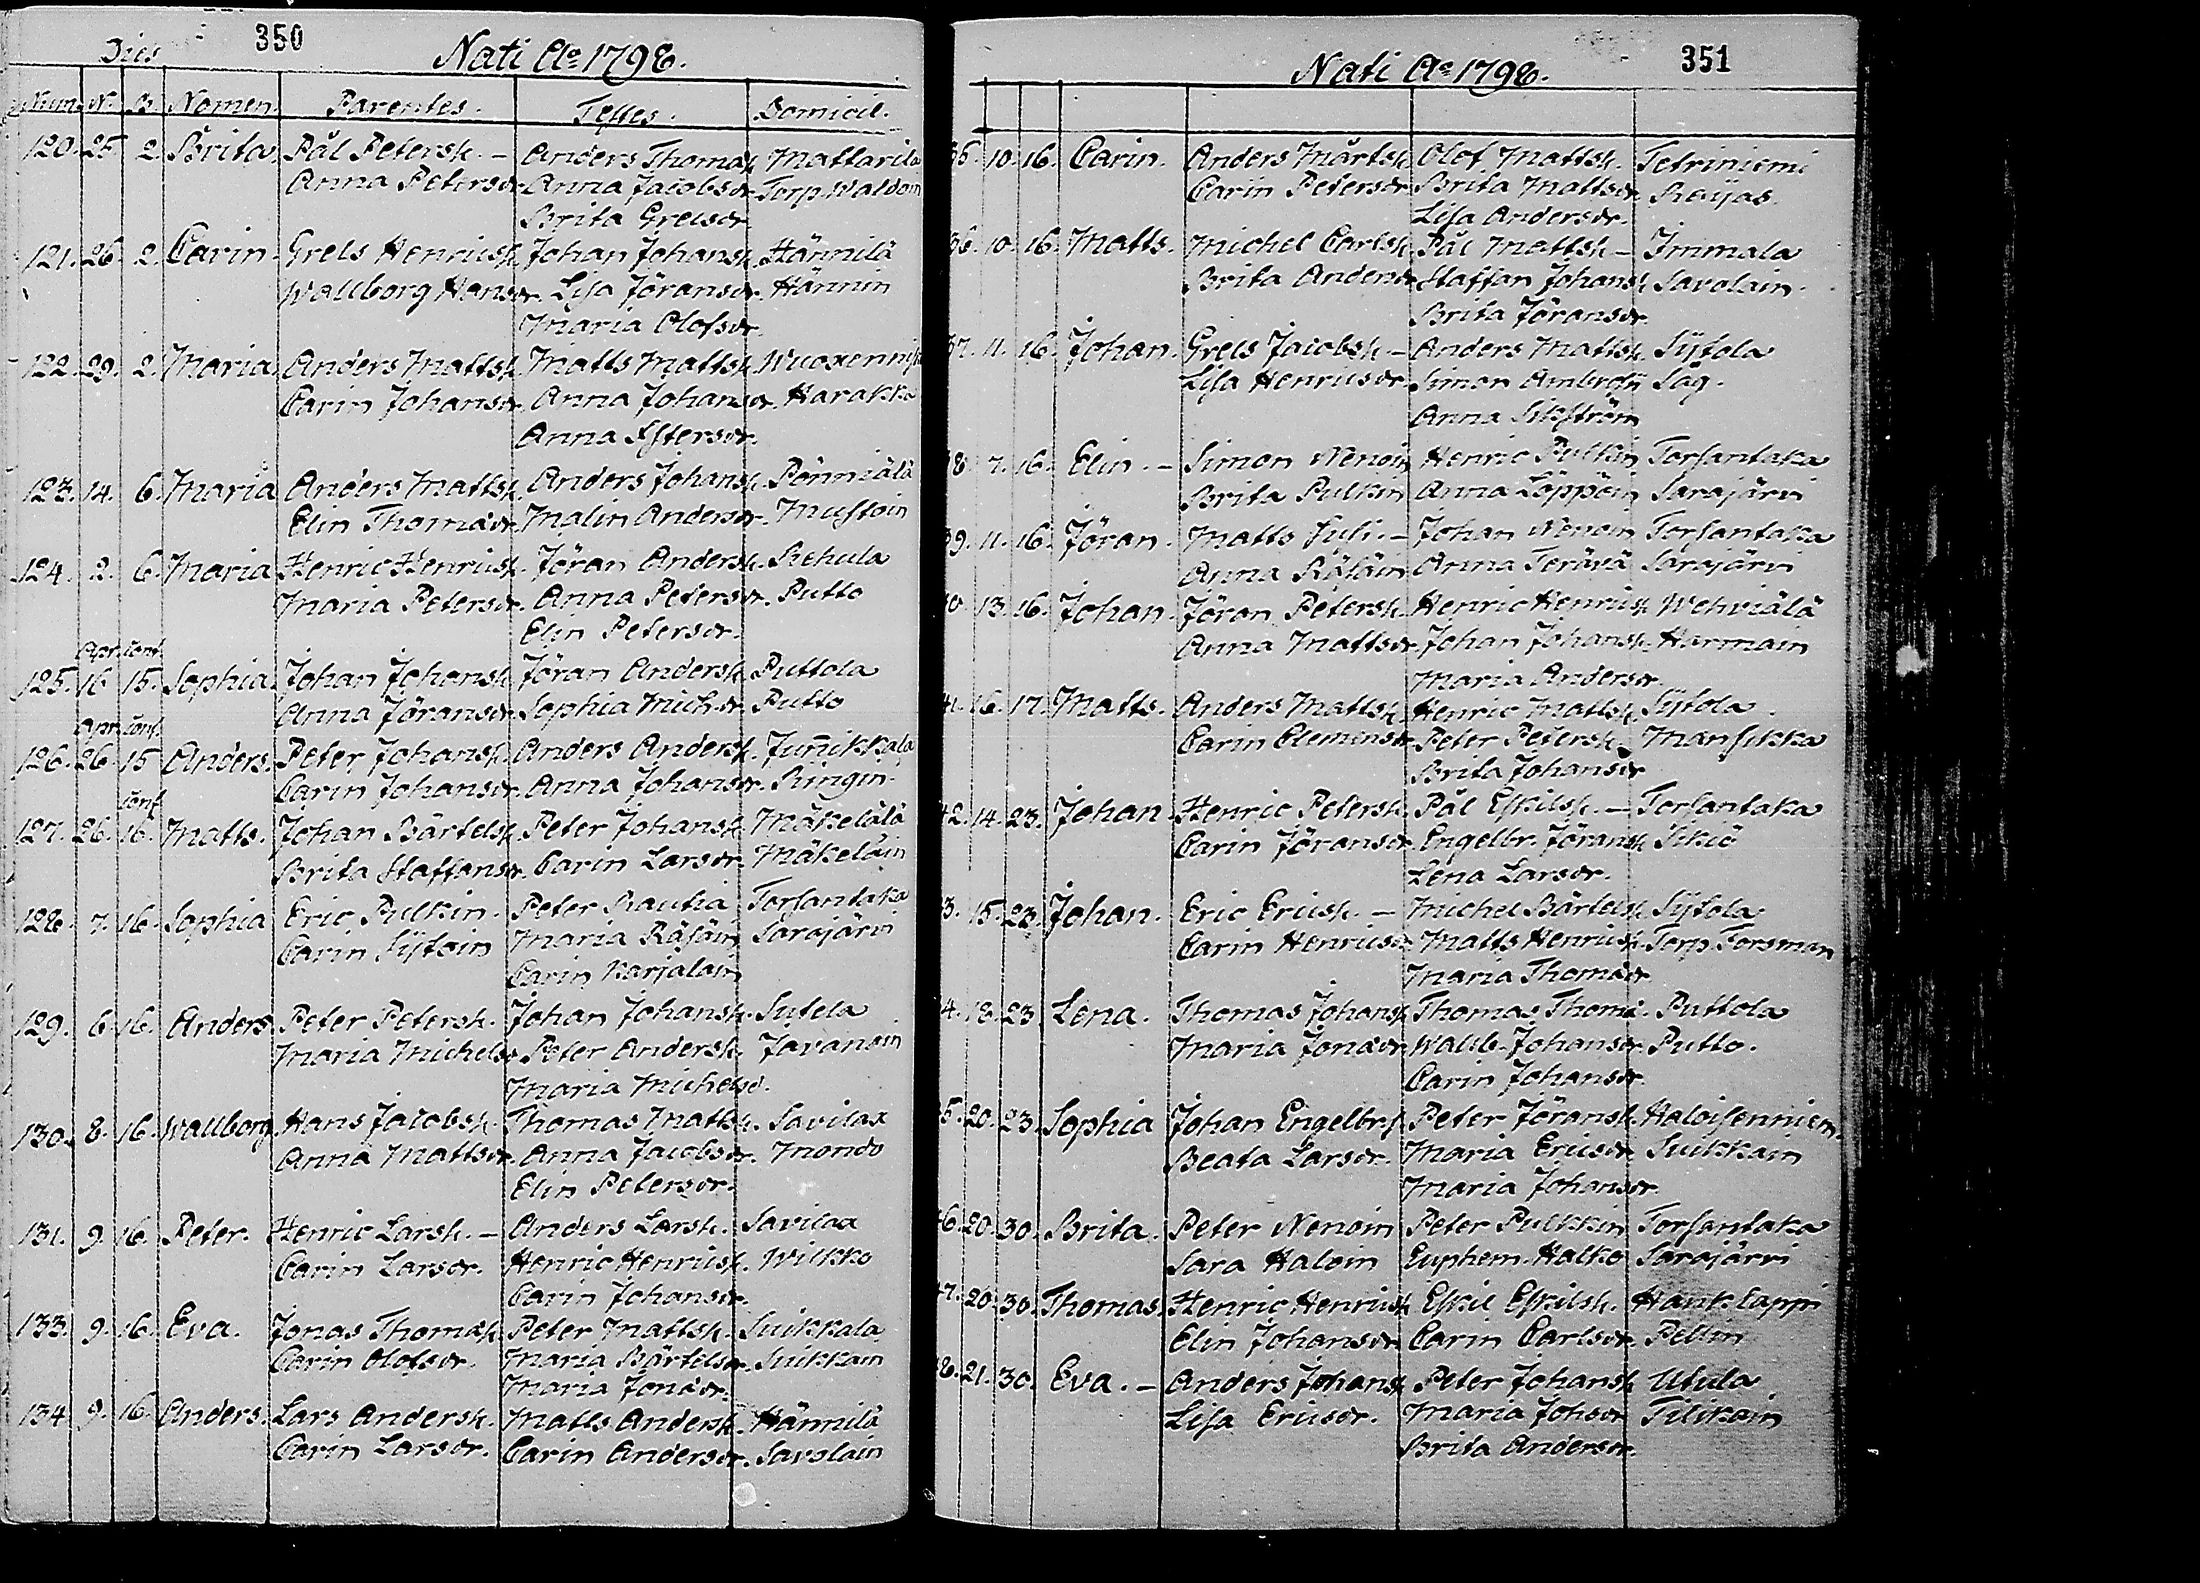 350
Dies
Nati Ao 1798.
Num. N. B. Nomen. Parentes. Testes. Domicil.
120. 25. 2. Brita. Pål Petersk. - Anders Thomask. Mattarila
Anna Petersdr. Anna Jacobsdr. Torp. Waldoin
Brita Grelsdr.
121. 26. 2. Carin. Grels Henricsk. Johan Johansk. Hännilä
Wallborg Hansdr. Lisa Jöransdr. Hännin
Maria Olofsdr.
122. 29. 2. Maria. Anders Mattsk. Matts Mattsk. Wuoxennisk
Carin Johansdr. Anna Johansdr. Harakka
Anna Estersdr.
123. 14. 6. Maria Anders Mattsk. Anders Johansk. Pönniälä
Elin Thomædr. Malin Andersdr. Mustoin
124. 2. 6. Maria Henric Henricsk. Jöran Andersk. Rehula
Maria Petersdr. Anna Petersdr. Putto
Elin Petersdr.
Apr. conf.
125. 16. 15. Sophia. Johan Johansk. Jöran Andersk. Puttola
Anna Jöransdr. Sophia Mich.dr. Putto
Apr. conf.
126. 26. 15 Anders. Peter Johansk. Anders Andersk. Jun̄ikkala
Carin Johansdr. Anna Johansdr. Ringin.
conf
127. 26. 16. Matts. Johan Bärtelsk. Peter Johansk. Mäkelälä
Brita Staffansdr. Carin Larsdr. Mäkeläin
128. 7. 16. Sophia Eric Pulkin. Peter Rautia Torsantaka
Carin Sijtoin Maria Räsäin Sarajärvi
Carin Karjalain
129. 6. 16. Anders Peter Petersk. Johan Johansk. Sutela
Maria Michelsdr. Peter Andersk. Javanain
Maria Michelsd.
130. 8. 16. Wallborg. Hans Jacobsk. Thomas Mattsk. Savilax
Anna Mattsdr. Anna Jacobsdr. Mondo
Elin Petersdr.
131. 9. 16. Peter. Henric Larsk. - Anders Larsk. Savilax
Carin Larsdr. Henric Henricsk. Wilkko
Carin Johansdr.
133. 9. 16. Eva. Jonas Thomæk. Peter Mattsk. Suikkala
Carin Olofsdr. Maria Bärtelsdr. Suikkain
Maria Jonædr.
134. 9. 16. Anders. Lars Andersk. Matts Andersk. Hännilä
Carin Larsdr. Carin Andersdr. Savolain
351
Nati Ao 1798.
35. 10. 16. Carin. Anders Mårtsk. Olof Mattsk. Tetriniemi
Carin Petersdr. Brita Mattsdr. Raijas.
Lisa Andersdr.
36. 10. 16. Matts. Michel Carlsk. Pål Mattsk - Immala
Brita Andersdr. Staffan Johansk. Savolain.
Brita Jöransdr.
37. 11. 16. Johan. Grels Jacobsk. - Anders Mattsk. Sijtola
Lisa Henricsdr. Simon Ambrosij Såg.
Anna Sikström
8. 7. 16. Elin. - Simon Nenoin Henric Pulkin Torsantaka
Brita Pulkin Anna Löppöin Sarajärvi
39. 11. 16. Jöran. Matts Suli. - Johan Nenoin Torsantaka
Anna Anna Terävä Sarajärvi
0. 13. 16. Johan. Jöran Petersk. Henric Henricsk. Wehviälä
Anna Mattsdr. Johan Johansk. Harmain
Maria Andersdr.
41. 16. 17. Matts. Anders Mattsk. Henric Mattsk. Sijtola.
Carin Clemensdr. Peter Petersk. Mansikka
Brita Johansdr
42. 14. 23. Johan. Henric Petersk. Pål Eskilsk. - Torsantaka
Carin Jöransdr. Engelbr. Jöransk. Sikiö
Lena Larsdr.
3. 15. 23. Johan. Eric Ericsk. - Michel Bärtelsk. Sijtola
Carin Henricsdr. Matts Henricsk. Torp. Forsman
Maria Thomædr.
4. 18. 23. Lena. Thomas Johansk. Thomas Thomæ. Puttola
Maria Jonædr. Wallb. Johansdr. Putto.
Carin Johansdr.
5. 20. 23. Sophia Johan Engelbr.k. Peter Jöransk. Haloisenniem.
Beata Larsdr. Maria Ericsdr. Suikkain
Maria Johansdr.
46. 20. 30. Brita. Peter Nenoin Peter Pulkkin Torsantaka
Sara Haloin Euphem. Halko Sarajärvi
47. 20. 30. Thomas. Henric Henricsk. Eskil Eskilsk. Hauklappi
Elin Johansdr. Carin Carlsdr. Pellin
8. 21. 30. Eva. - Anders Johansk. Peter Johansk. Utula
Lisa Ericsdr. Maria Johsdr Tilikain
Brita Andersdr.